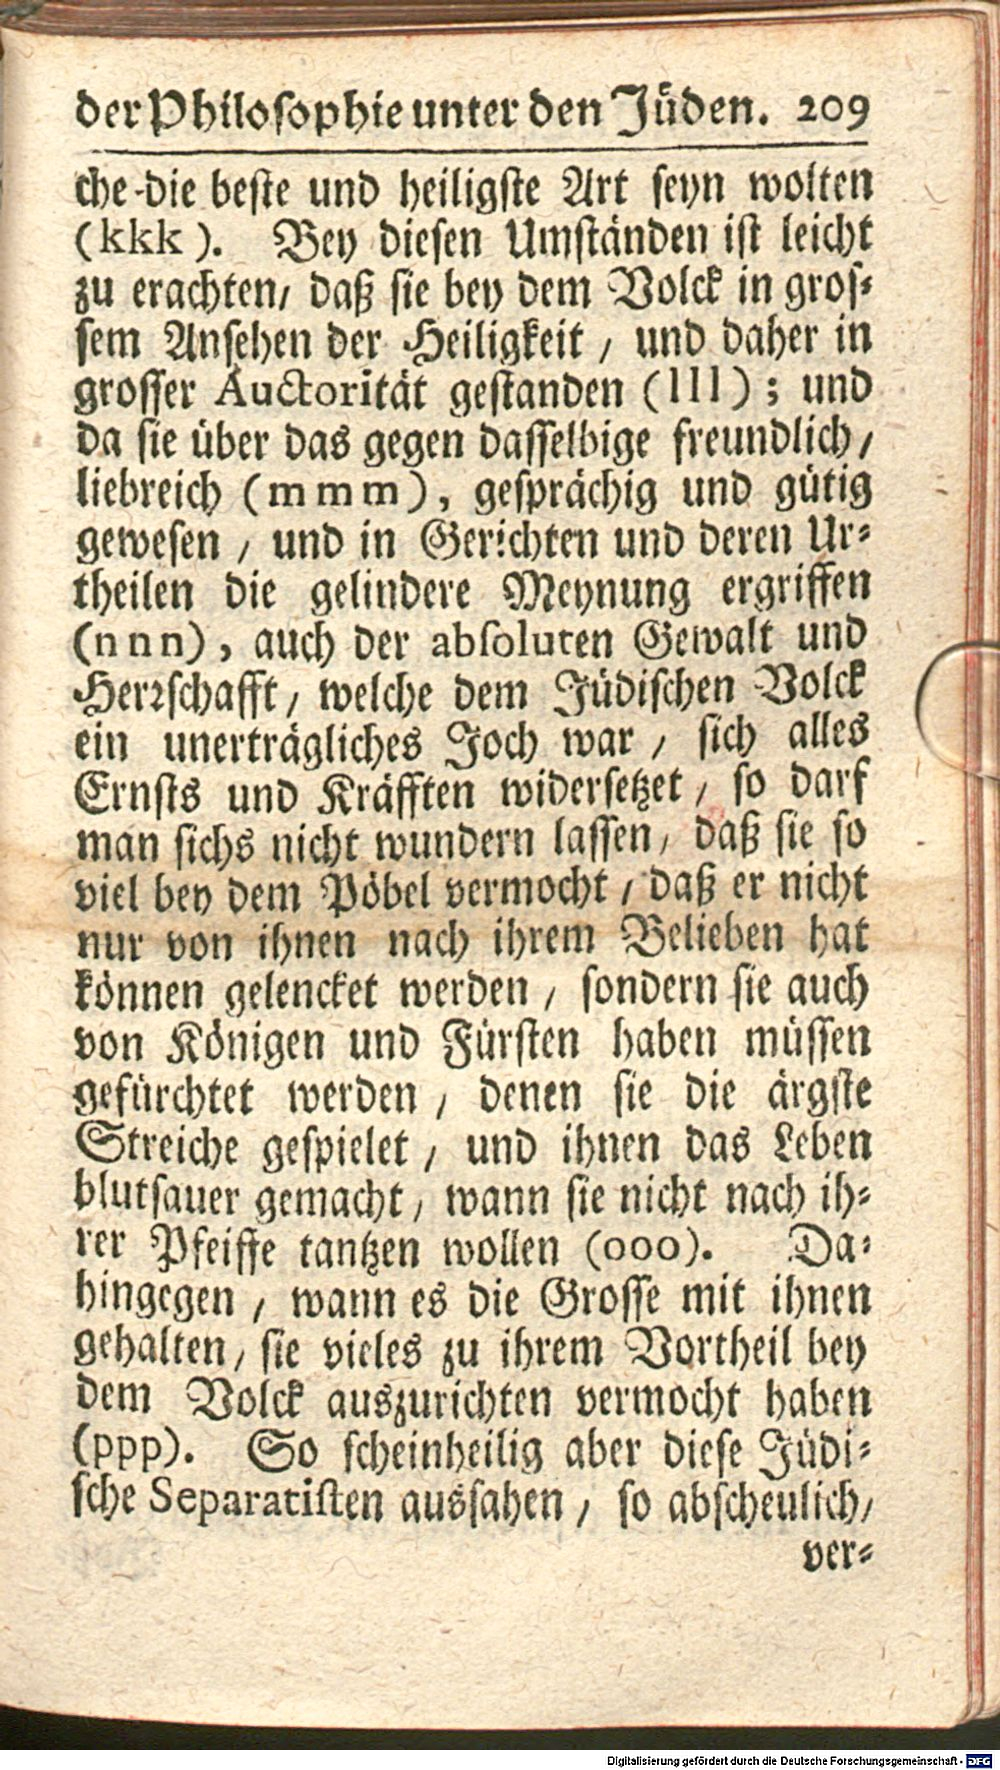 der Philosophie unter den Jüden. 209
che die beste und heiligste Art seyn wolten
(kkk). Bey diesen Umständen ist leicht
zu erachten, daß sie bey dem Volck in gros-
sem Ansehen der Heiligkeit, und daher in
grosser Auctorität gestanden (lll); und
da sie über das gegen dasselbige freundlich,
liebreich (mmm), gesprächig und gütig
gewesen, und in Gerichten und deren Ur-
theilen die gelindere Meynung ergriffen
(nnn), auch der absoluten Gewalt und
Herrschafft, welche dem Jüdischen Volck
ein unerträgliches Joch war, sich alles
Ernsts und Kräfften widersetzet, so darf
man sichs nicht wundern lassen, daß sie so
viel bey dem Pöbel vermocht, daß er nicht
nur von ihnen nach ihrem Belieben hat
können gelencket werden, sondern sie auch
von Königen und Fürsten haben müssen
gefürchtet werden, denen sie die ärgste
Streiche gespielet, und ihnen das Leben
blutsauer gemacht, wann sie nicht nach ih-
rer Pfeiffe tantzen wollen (ooo). Da-
hingegen, wann es die Grosse mit ihnen
gehalten, sie vieles zu ihrem Vortheil bey
dem Volck auszurichten vermocht haben
(ppp). So scheinheilig aber diese Jüdi-
sche Separatisten aussahen, so abscheulich,
ver-
Digitalisierung gefördert durch die Deutsche Forschungsgemeinschaft - DFG